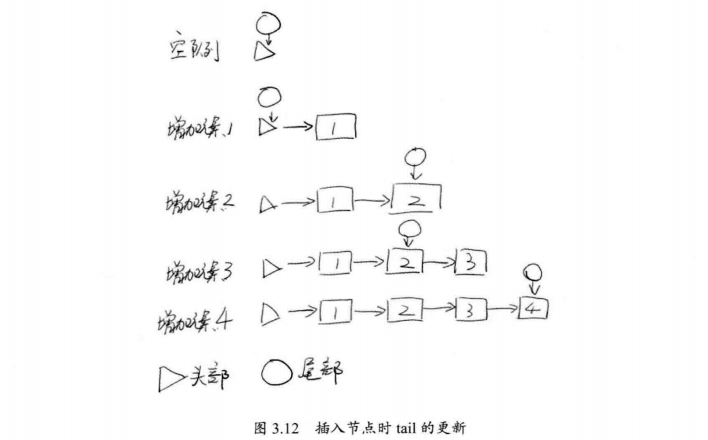 空队列
增加元素1
1
增加元素2
1 2
增加元素3
1 2 3
增加元素4
1 2 3 4
头部 尾部
图 3.12 插入节点时 tail 的更新